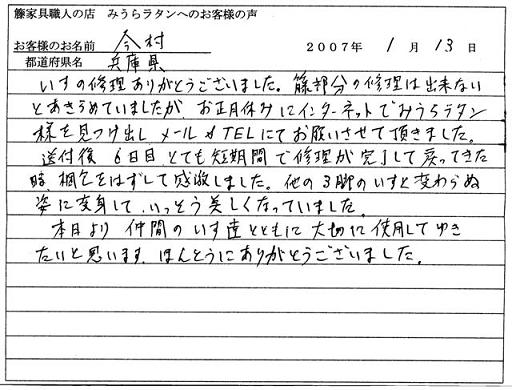 籐家具職人の店 みうらラタンへのお客様の声
お客様のお名前 今村 2007年 1月 13日
都道府県名 兵庫県
いすの修理ありがとうございました。籐部分の修理は出来ない
とあきらめていましたが お正月休みにインターネットでみうらラタン
様を見つけ出し メール & TELにてお願いさせて頂きました。
送付後 6日目 とても短期間で修理が完了して戻ってきた
時 梱包をはずして感激しました。他の3脚のいすと変わらぬ
姿に変身して、いっそう美しくなっていました。
本日より 仲間のいす達とともに大切に使用してゆき
たいと思います。ほんとうにありがとうございました。